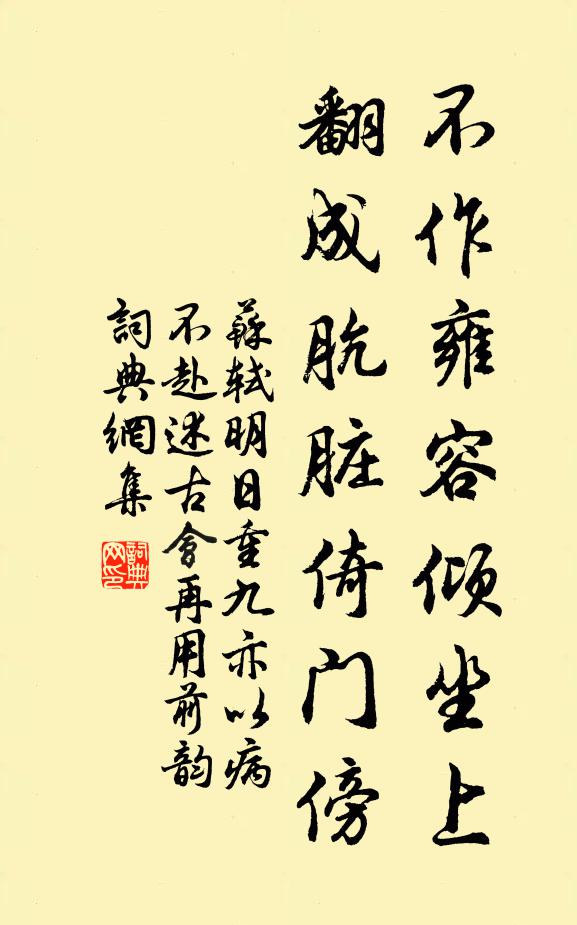 不作雍容倾坐上
翻成肮脏倚门傍
蘇軾明日重九亦以病
不赴述古會再用前韵
詞典網集
詞典网印